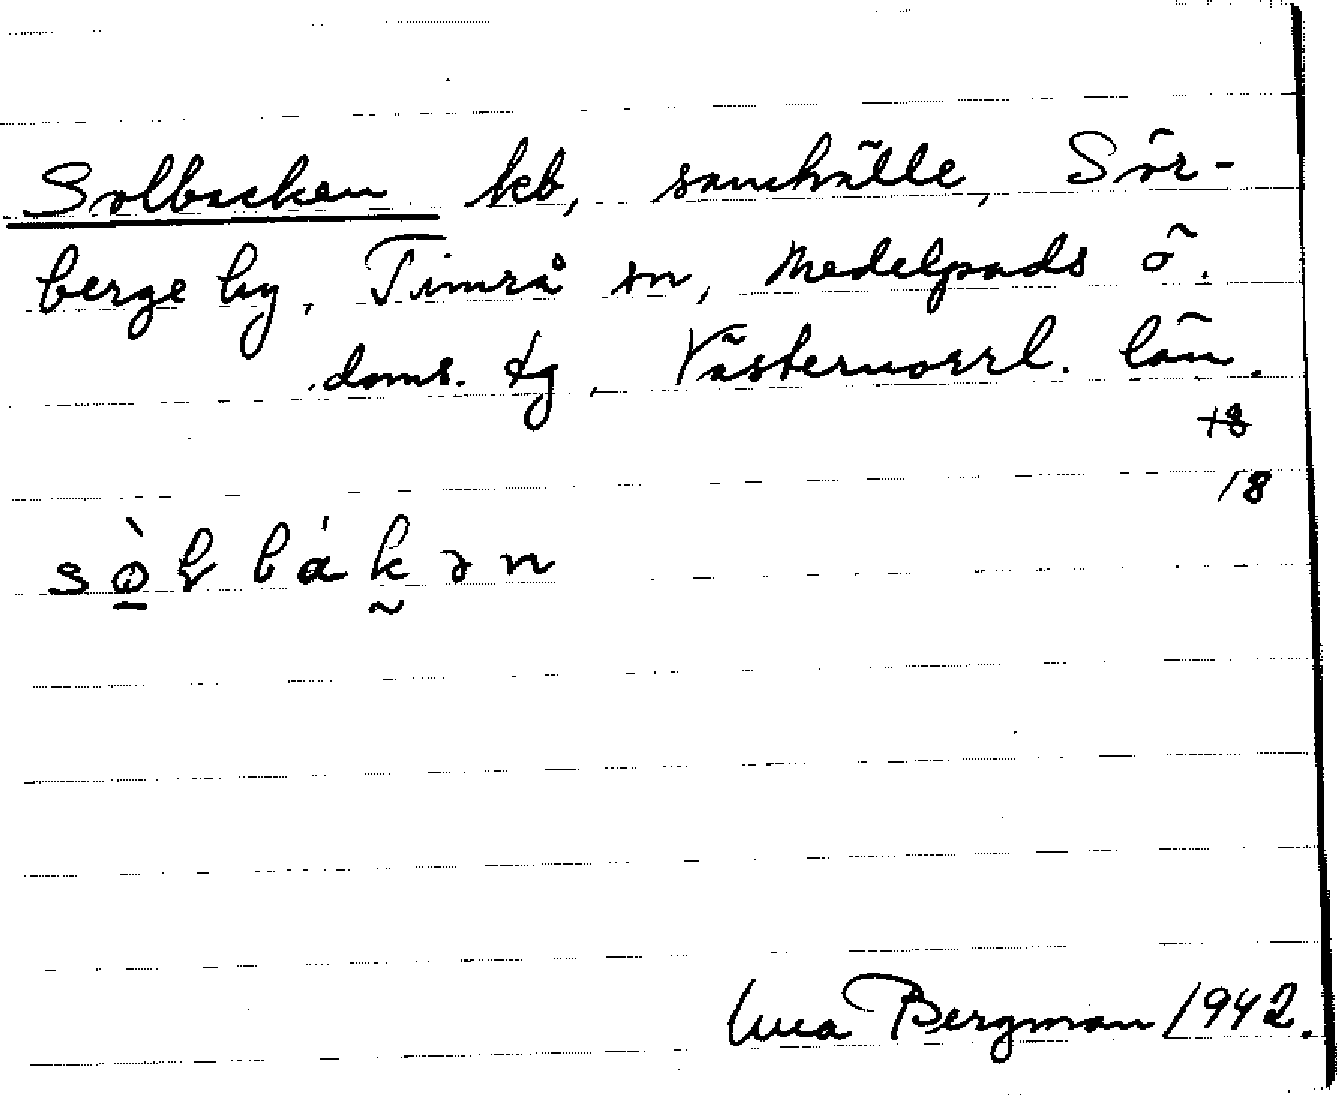 Solbacken kb, samhälle, Sör-
berge by, Timrå sn, Medelpads ö.
doms. tg, Västernorrl. län.
18
18
Bergman 1942.